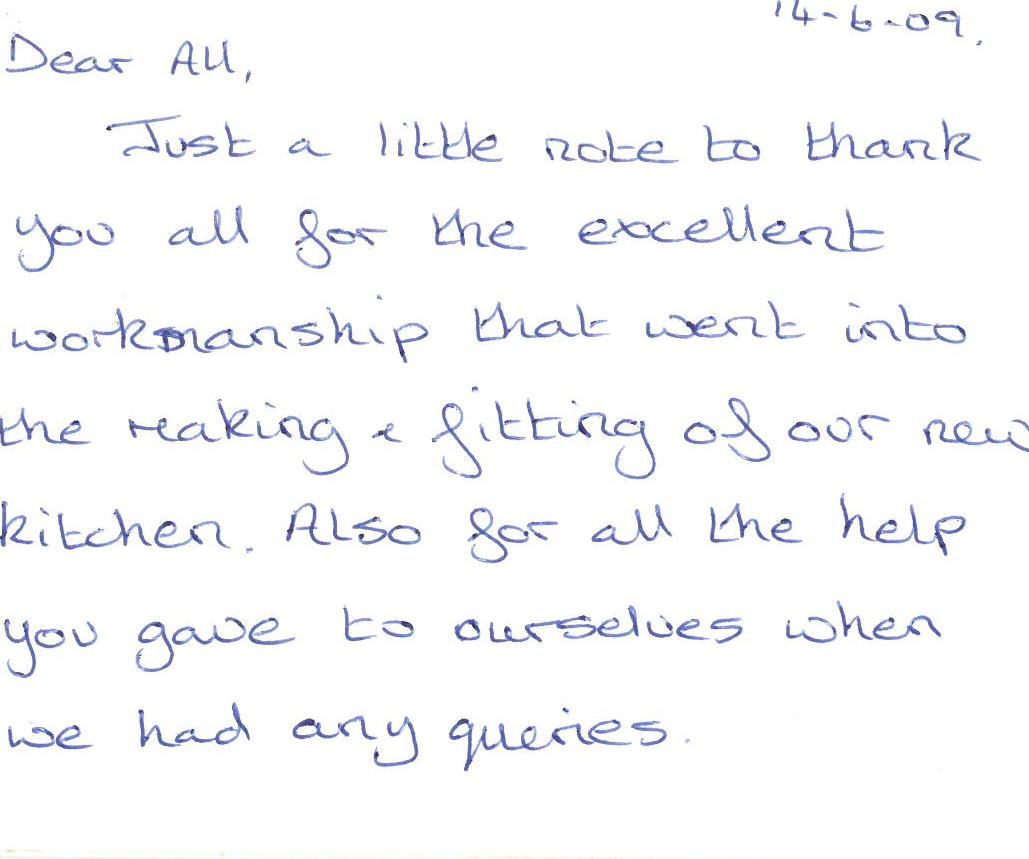 14-6-09.
Dear All,
Just a little note to thank
you all for the excellent
workmanship that went into
the making & fitting of our new
kitchen. Also for all the help
you gave to ourselves when
we had any queries.